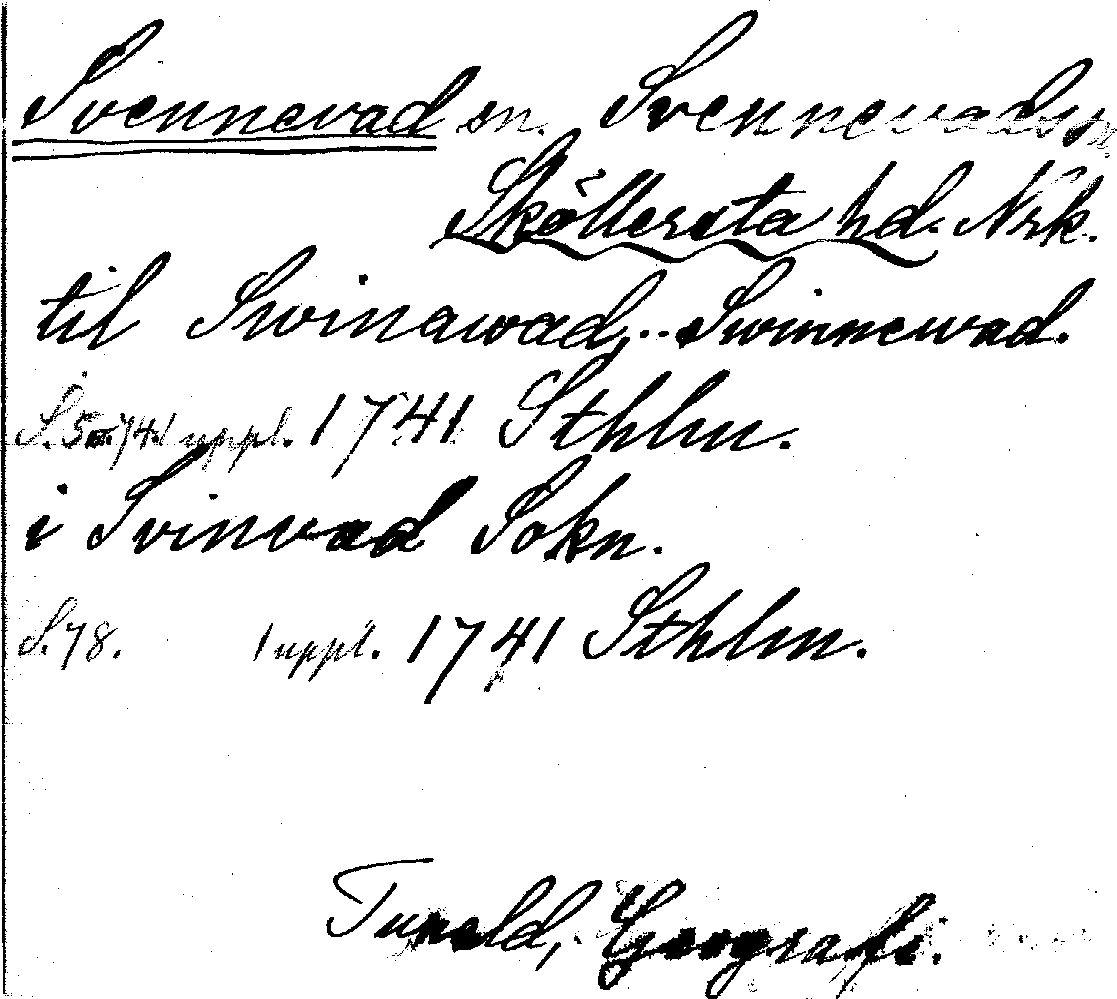 Svennevad sn. Svennevads sn
Sköllersta hd. Nrk.
til Swinawad, .. Swinnewad.
S. 5 1741 uppl. 1741 Sthlm.
i Svinvad Sokn.
S. 78. 1 uppl. 1741 Sthlm.
Tuneld, Geografi.